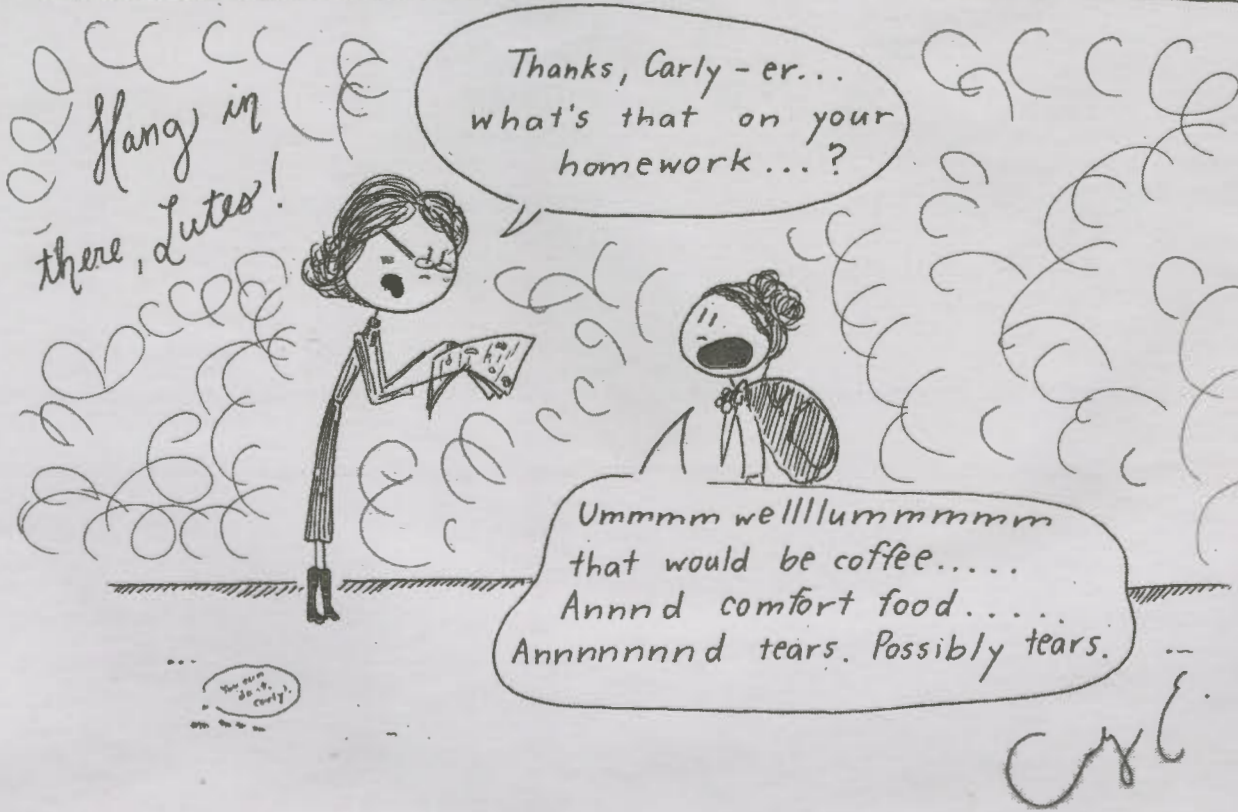 Hang in
there, Lutes!
Thanks, Carly - er...
what's that on your
homework...?
Ummmm wellllummmmmm
that would be coffee.....
Annnd comfort food......
Annnnnnnd tears. Possibly tears.
You can
do it,
Carly!